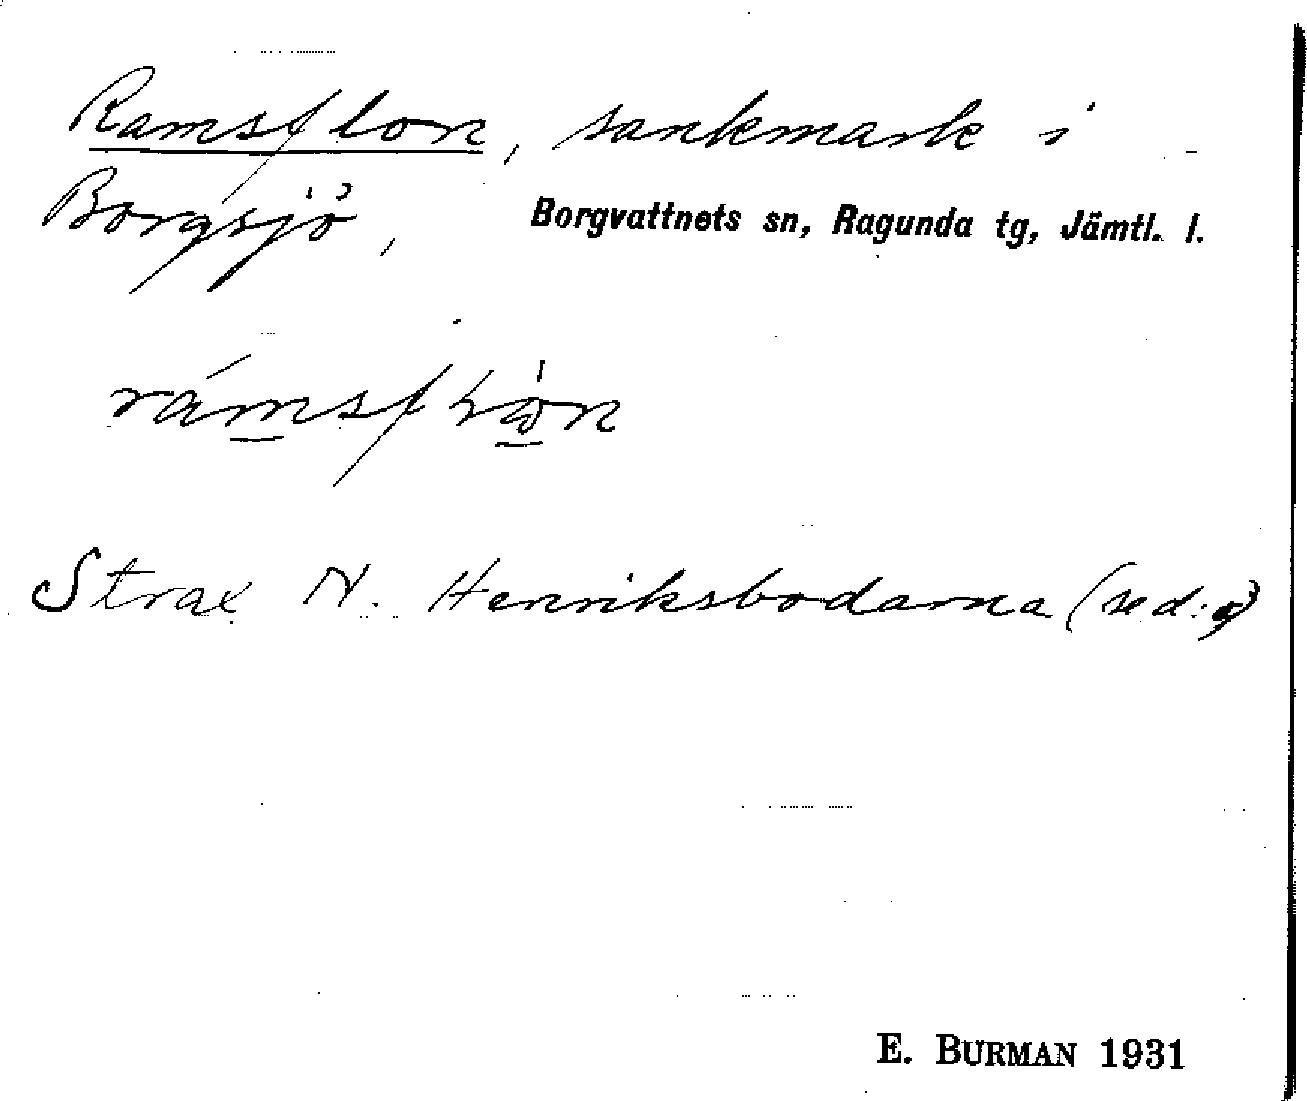 Ramsflon, sankmark i
Borgsjö, Borgvattnets sn, Ragunda tg, Jämtl. l.
Strax N. Henriksbodarna (sed:a)
E. BURMAN 1931